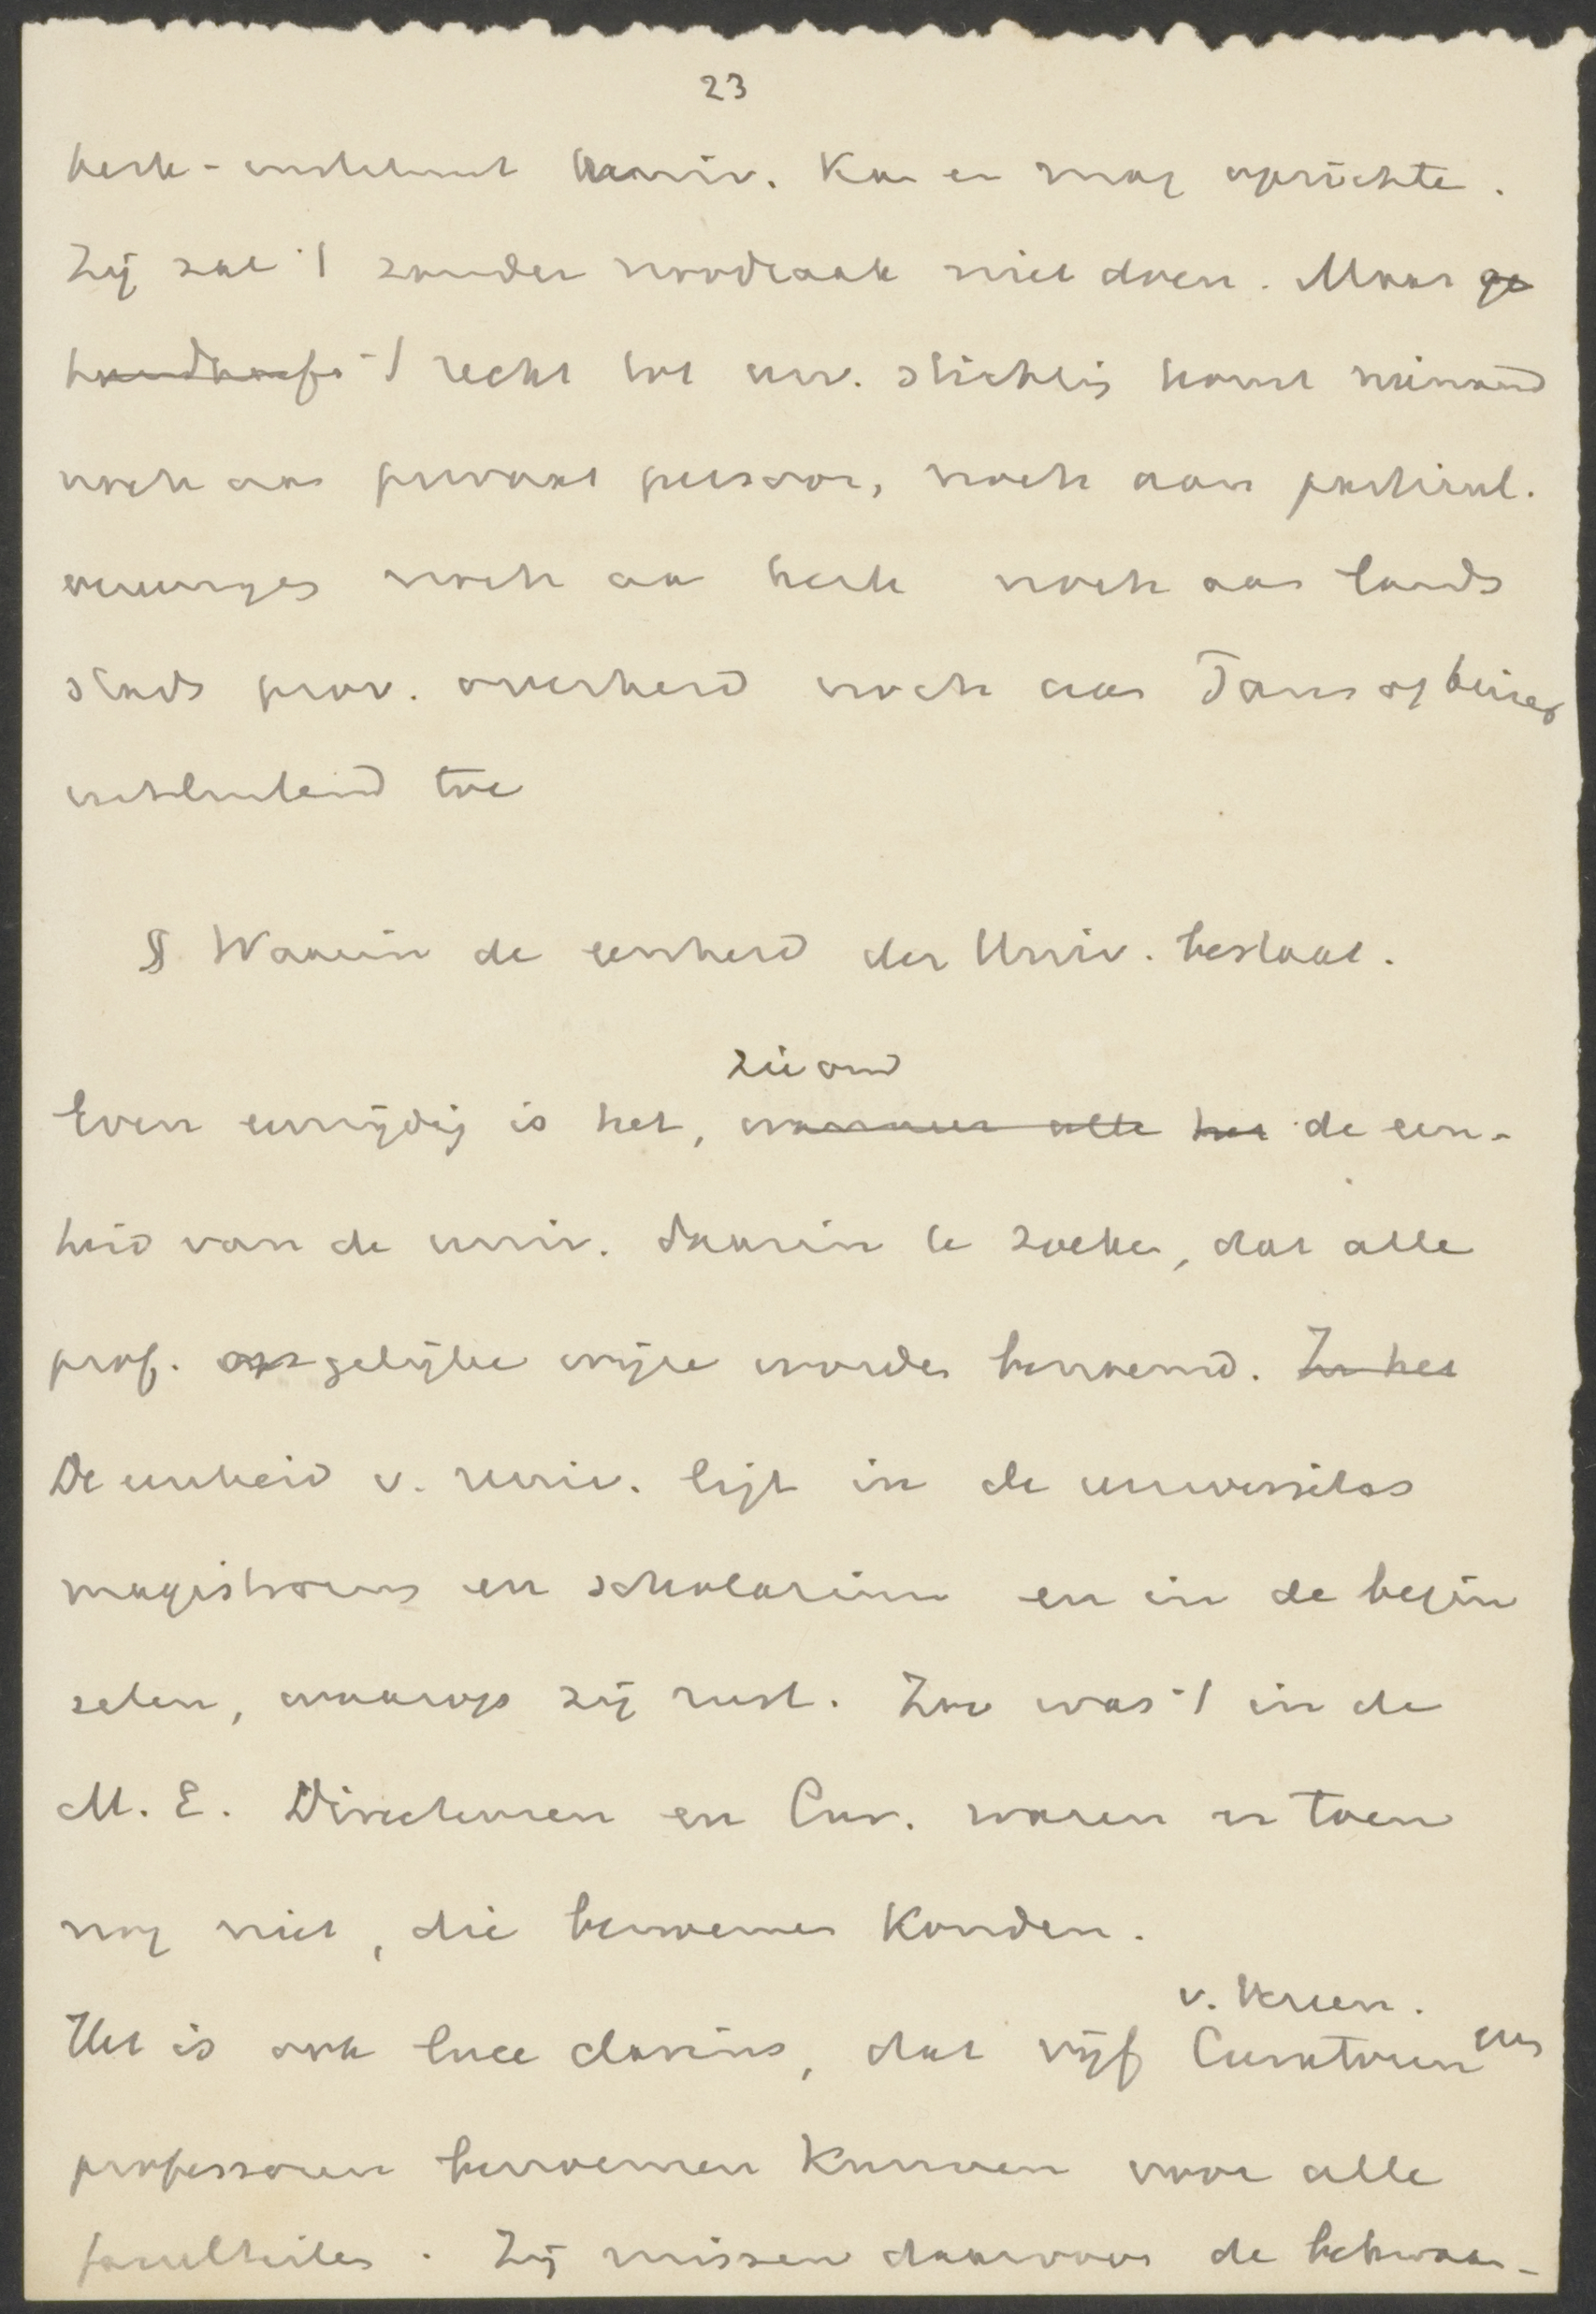 23
kerk - instituut univ. kan en mag oprichte.
Zij zal 't zonder noodzaak niet doen. Maar ge
handhaafd 't recht tot univ. stichtig komt niemand
noch aan privaat persoon, noch aan particul.
vereeniges noch aan kerk noch aan lands
stads prov. overheid noch aan Paus of keizer
uitsluitend toe
§. Waarin de eenheid der Univ. bestaat.
ziend
Even eenzijdig is het, wanneer alle het de een-
heid van de univ. daarin te zoeke, dat alle
prof. op gelijke wijze worde benoemd. In het
De eenheid v. univ. ligt in de universitas
magistrorum en scholarium en in de begin
selen, waarop zij rust. Zoo was 't in de
M. E. Directeuren en Cur. waren er toen
nog niet, die benoemen konden.
v. Vereen.
Het is ook luce clarius, dat vijf Curatoren een
professoren benoemen kunnen voor alle
faculteiten. Zij missen daarvoor de bekwaa-